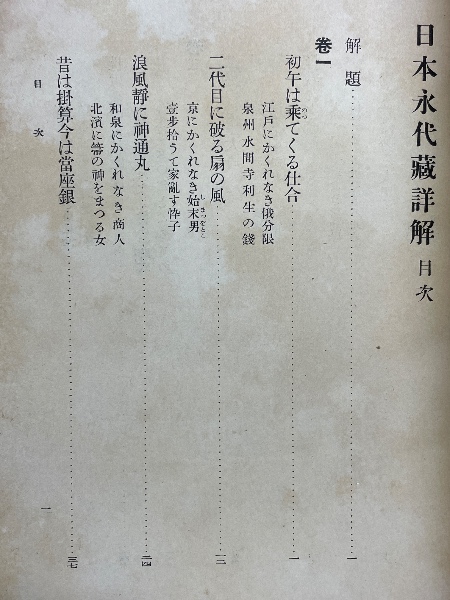 日本永代藏詳解 目次
解題……………一
卷一
初午は乘てくる仕合……………一
江戸にかくれなき俄分限
泉州水間寺利生の錢
二代目に破る扇の風……………一三
京にかくれなき始末男
壹歩拾うて家亂す忰子
浪風靜に神通丸……………二四
和泉にかくれなき商人
北濱に箒の神をまつる女
昔は掛算今は當座銀……………三七
目次
一